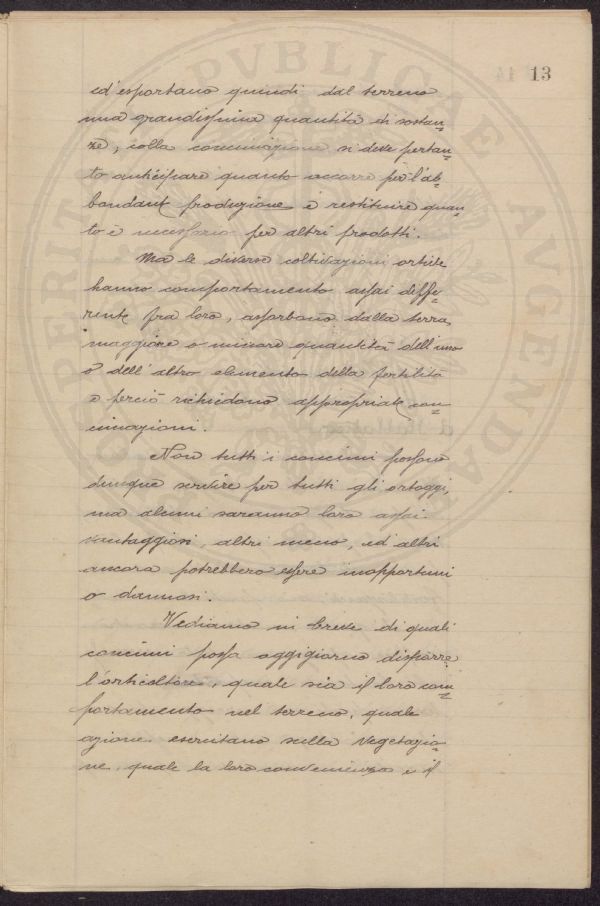 13
ed esportano quindi dal terreno
una grandissima quantità di sostan=
ze, colla concimazione si deve pertan=
to anticipare quanto occorre per l'ab=
bondant produzione e restituire quan=
to è necessario per altri prodotti.
Ma le diverse coltivazioni ortive
hanno comportamento assai diffe=
rente fra loro, assorbono dalla terra
maggiore o minore quantità dell'uno
o dell'altro elemento della fertilità
e perciò richiedono appropriate con=
cimazioni.
Non tutti i concimi possono
dunque servire per tutti gli ortaggi,
ma alcuni saranno loro assai
vantaggiosi, altri meno, ed altri
ancora potrebbero essere inopportuni
o dannosi.
Vediamo in breve di quali
concimi possa oggigiorno disporre
l'orticoltore, quale sia il loro com=
portamento nel terreno, quale
azione esercitano sulla vegetazio=
ne, quale la loro convenienza e il
PVBLICAE AVGENDAE